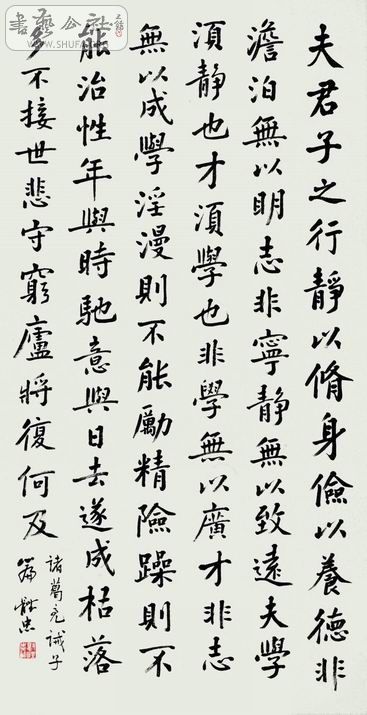 夫君子之行靜以脩身儉以養德非
澹泊無以明志非寧靜無以致遠夫學
須靜也才須學也非學無以廣才非志
無以成學淫漫則不能勵精險躁則不
能治性年與時馳意與日去遂成枯落
多不接世悲守窮廬將復何及
諸葛亮誡子
篇
書藝公社